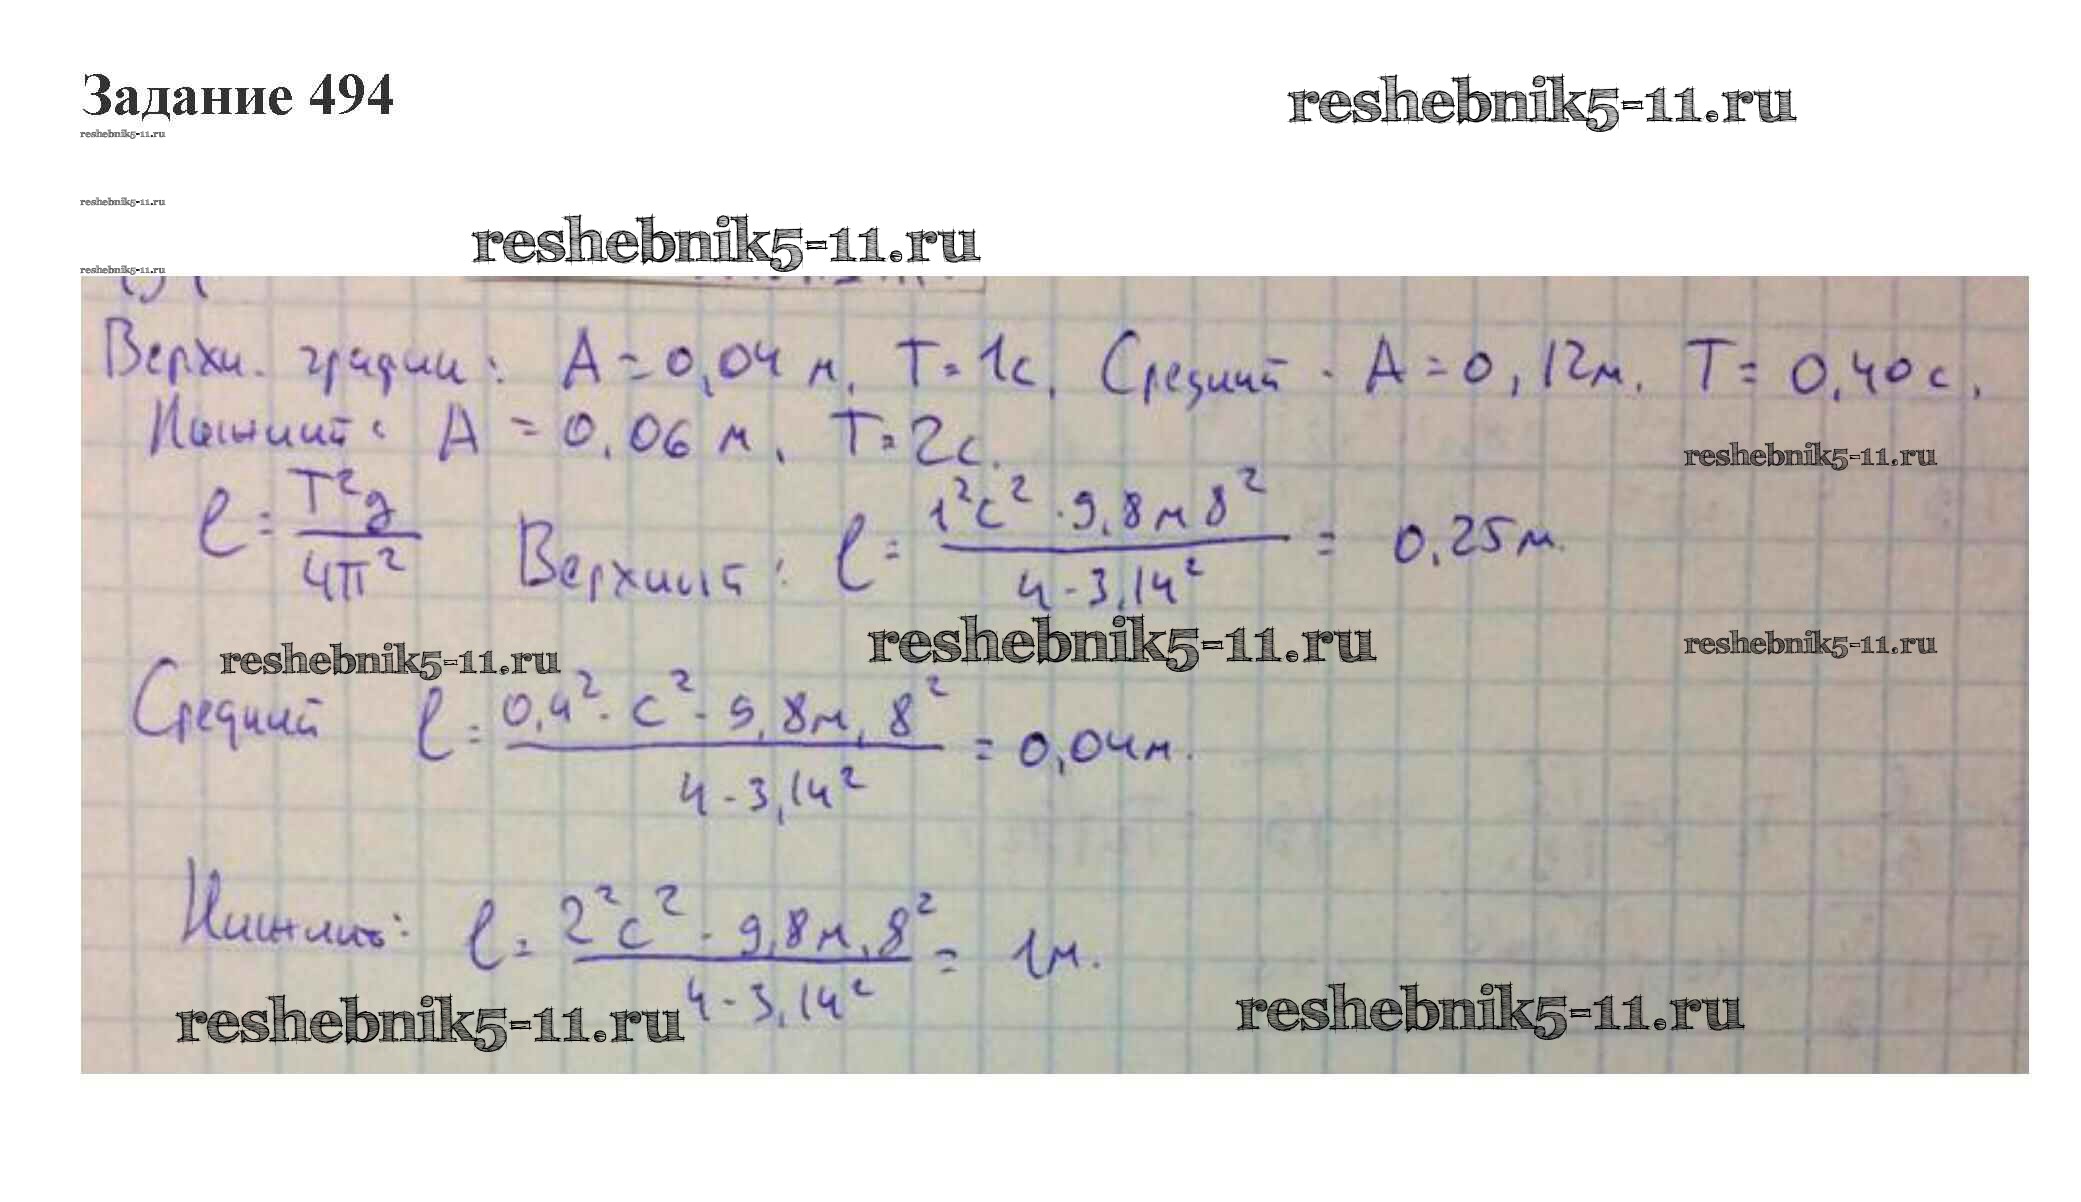 Задание 494
reshebnik5-11.ru
reshebnik5-11.ru
reshebnik5-11.ru
reshebnik5-11.ru
reshebnik5-11.ru
Верхн. график: A = 0,04 м. T = 1с. Средний - A = 0,12м. T = 0,40с.
Нижний: A = 0,06 м. T = 2с.
reshebnik5-11.ru
l = T²g / 4π² Верхний: l = 1²с² · 9,8м 8² / 4 · 3,14² = 0,25м.
reshebnik5-11.ru
reshebnik5-11.ru
reshebnik5-11.ru
Средний l = 0,4² · с² · 9,8м, 8² / 4 · 3,14² = 0,04м.
Нижний: l = 2²с² · 9,8м, 8² / 4 · 3,14² = 1м.
reshebnik5-11.ru
reshebnik5-11.ru